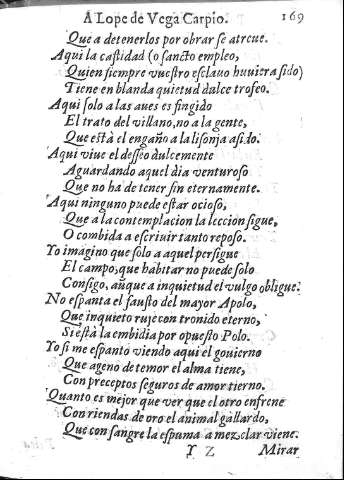 A Lope de Vega Carpio. 169
Que a detenerlos por obrar se atreue.
Aqui la castidad (o sancto empleo,
Quien siempre vuestro esclauo huuiera sido)
Tiene en blanda quietud dulce trofeo.
Aqui solo a las aues es fingido
El trato del villano, no a la gente,
Que està el engaño a la lisonja asido.
Aqui viue el desseo dulcemente
Aguardando aquel dia venturoso
Que no ha de tener fin eternamente.
Aqui ninguno puede estar ocioso,
Que a la contemplacion la leccion sigue,
O combida a escriuir tanto reposo.
Yo imagino que solo a aquel persigue
El campo, que habitar no puede solo
Consigo, aũque a inquietud el vulgo obligue.
No espanta el fausto del mayor Apolo,
Que inquieto ruje con tronido eterno,
Si està la embidia por opuesto Polo.
Yo si me espanto viendo aqui el gouierno
Que ageno de temor el alma tiene,
Con preceptos seguros de amor tierno.
Quanto es mejor que ver que el otro enfrene
Con riendas de oro el animal gallardo,
Que con sangre la espuma a mezclar viene.
Y 2 Mirar